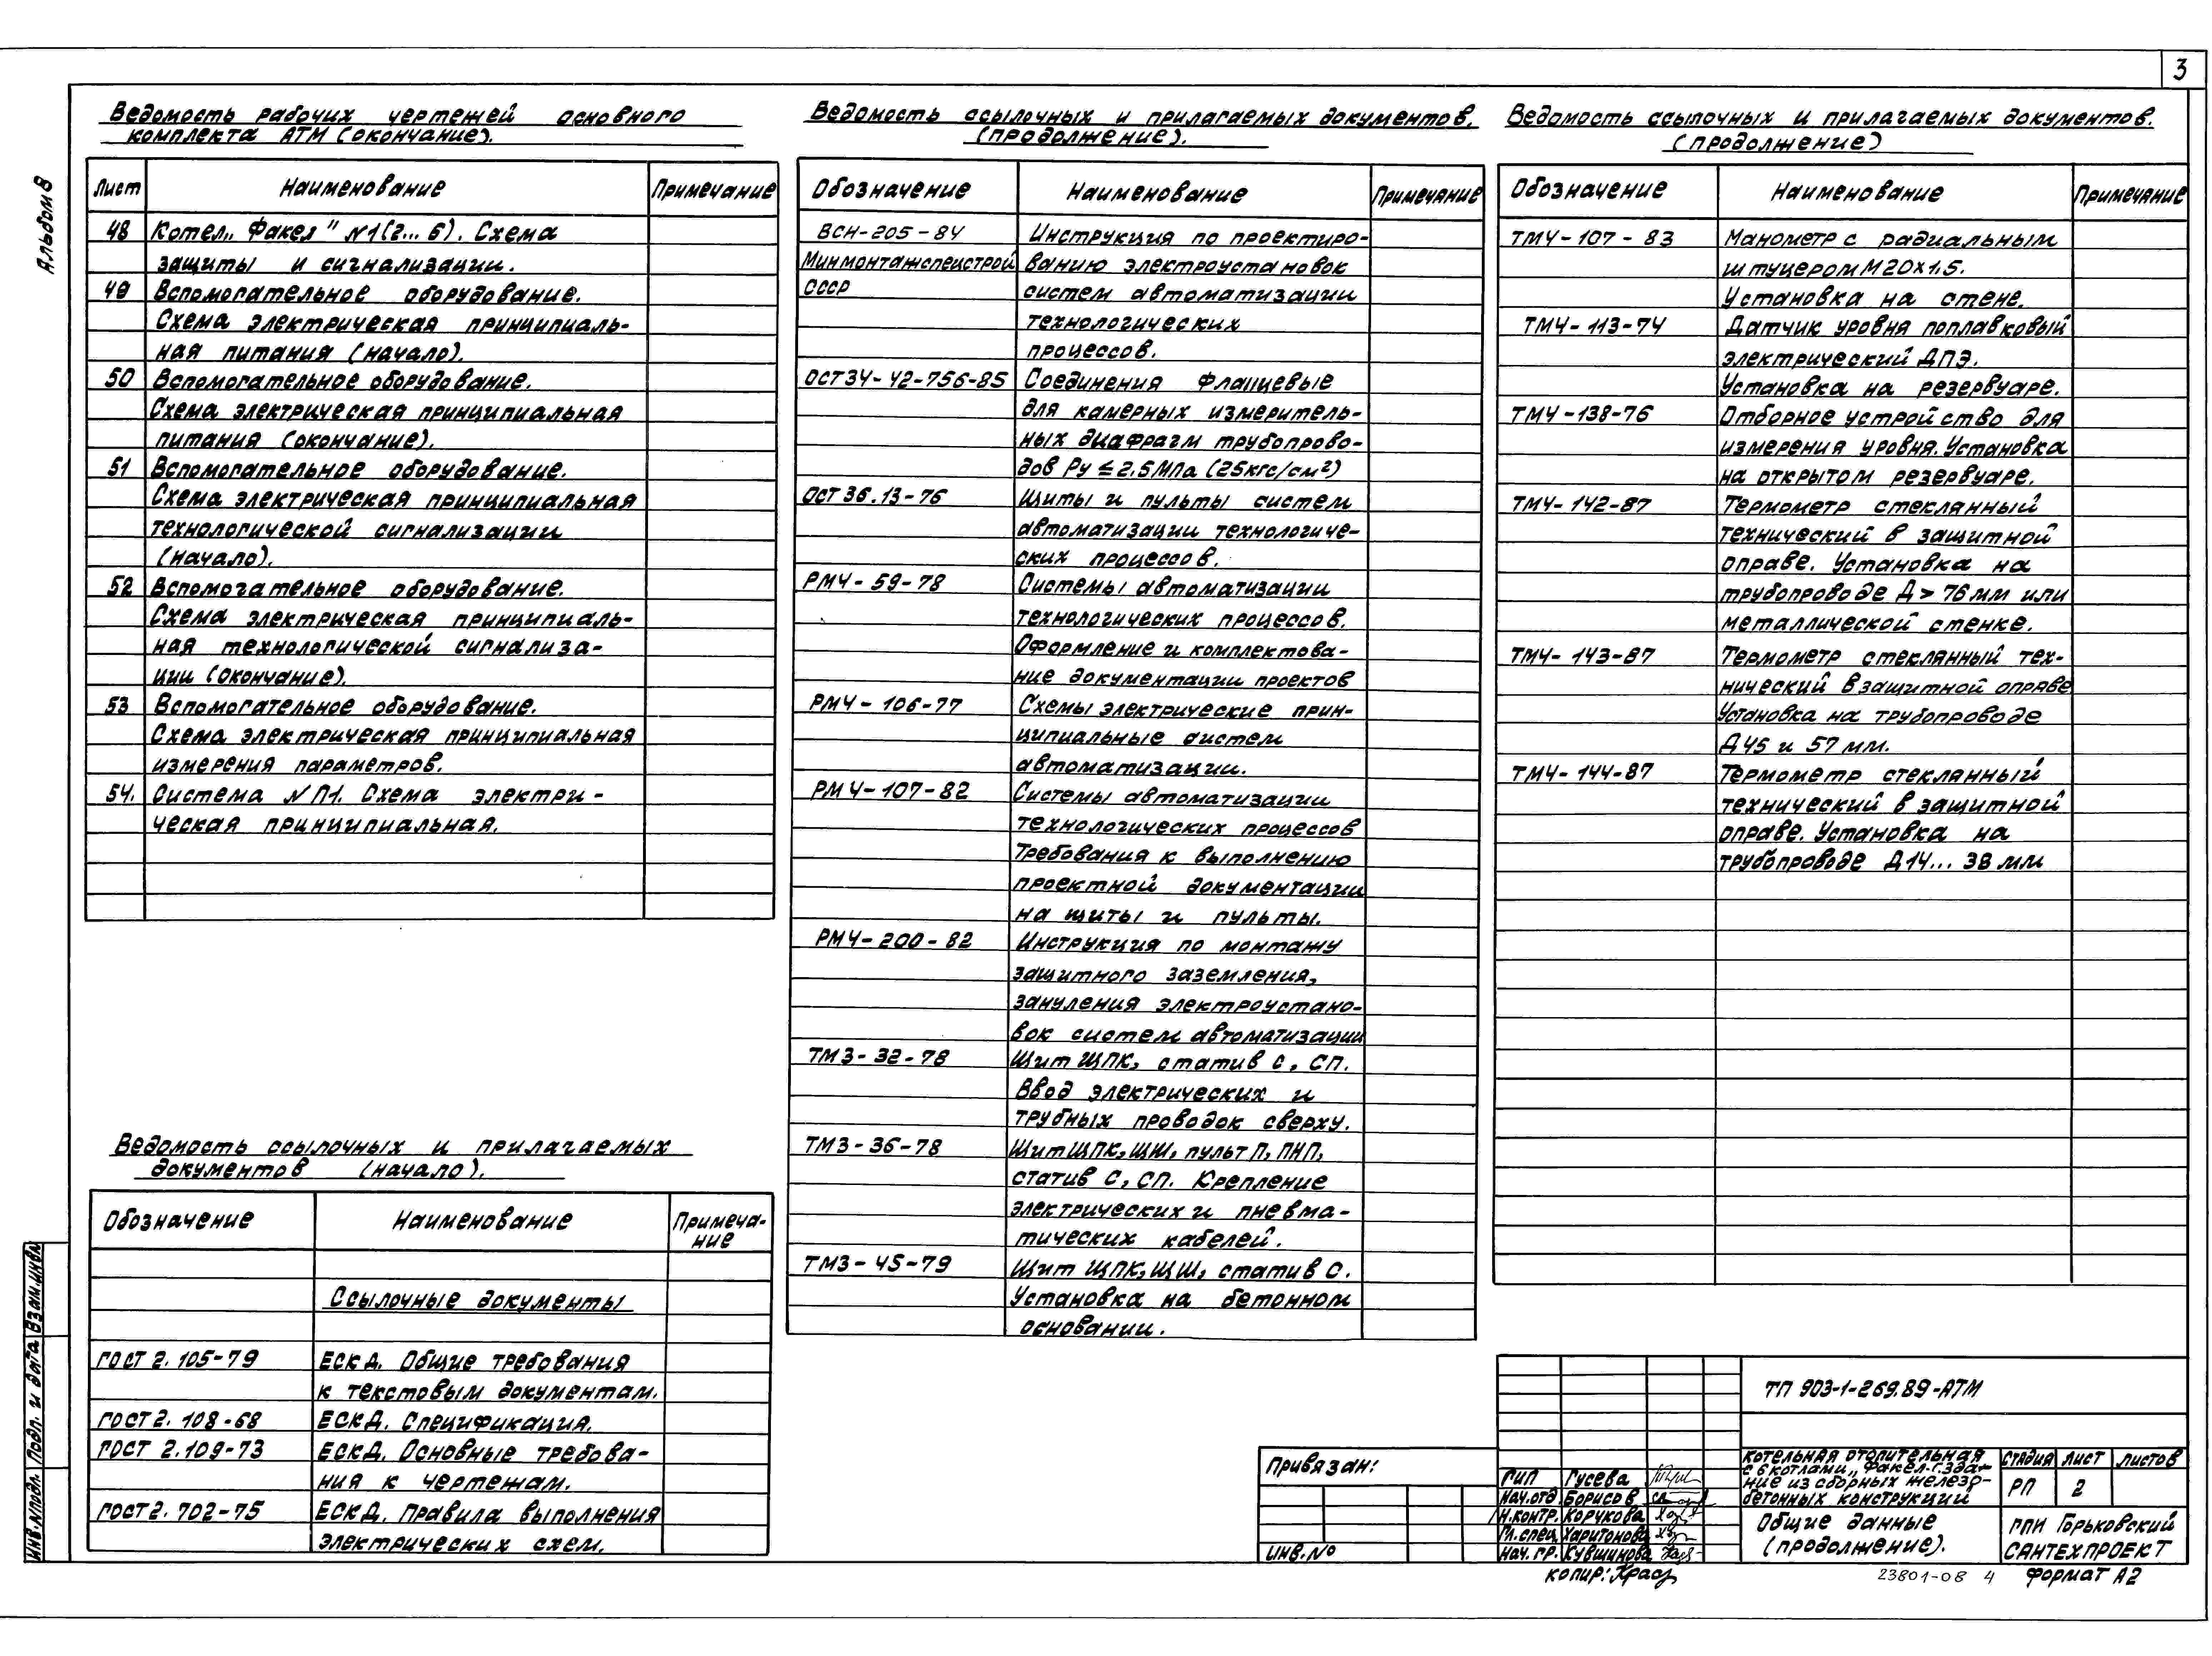 3
Альбом 8
Ведомость рабочих чертежей основного
комплекта АТМ (окончание).
Лист Наименование Примечание
48 Котел „Факел" №1(2...6). Схема
защиты и сигнализации.
49 Вспомогательное оборудование.
Схема электрическая принципиаль-
ная питания (начало).
50 Вспомогательное оборудование.
Схема электрическая принципиальная
питания (окончание).
51 Вспомогательное оборудование.
Схема электрическая принципиальная
технологической сигнализации
(начало).
52 Вспомогательное оборудование.
Схема электрическая принципиаль-
ная технологической сигнализа-
ции (окончание).
53 Вспомогательное оборудование.
Схема электрическая принципиальная
измерения параметров.
54. Система №П1. Схема электри-
ческая принципиальная.
Ведомость ссылочных и прилагаемых
документов (начало).
Обозначение Наименование Примеча-
ние
Ссылочные документы
ГОСТ 2.105-79 ЕСКД. Общие требования
к текстовым документам.
ГОСТ 2.108-68 ЕСКД. Спецификация.
ГОСТ 2.109-73 ЕСКД. Основные требова-
ния к чертежам.
ГОСТ 2.702-75 ЕСКД. Правила выполнения
электрических схем.
Ведомость ссылочных и прилагаемых документов.
(продолжение).
Обозначение Наименование Примечание
ВСН-205-84 Инструкция по проектиро-
Минмонтажспецстрой ванию электроустановок
СССР систем автоматизации
технологических
процессов.
ОСТ34-42-756-85 Соединения фланцевые
для камерных измеритель-
ных диафрагм трубопрово-
дов Ру ≤ 2.5 МПа (25кгс/см²)
ОСТ 36.13-76 Щиты и пульты систем
автоматизации технологиче-
ских процессов.
РМ4-59-78 Системы автоматизации
технологических процессов.
Оформление и комплектова-
ние документации проектов
РМ4-106-77 Схемы электрические прин-
ципиальные систем
автоматизации.
РМ4-107-82 Системы автоматизации
технологических процессов
Требования к выполнению
проектной документации
на щиты и пульты.
РМ4-200-82 Инструкция по монтажу
защитного заземления,
зануления электроустано-
вок систем автоматизации
ТМ3-32-78 Щит ЩПК, статив С, СП.
Ввод электрических и
трубных проводок сверху.
ТМ3-36-78 Щит ЩПК, ЩШ, пульт П, ПНП,
статив С, СП. Крепление
электрических и пневма-
тических кабелей.
ТМ3-45-79 Щит ЩПК, ЩШ, статив С.
Установка на бетонном
основании.
Ведомость ссылочных и прилагаемых документов.
(продолжение)
Обозначение Наименование Примечание
ТМ4-107-83 Манометр с радиальным
штуцером М20х1,5.
Установка на стене.
ТМ4-113-74 Датчик уровня поплавковый
электрический ДПЭ.
Установка на резервуаре.
ТМ4-138-76 Отборное устройство для
измерения уровня. Установка
на открытом резервуаре.
ТМ4-142-87 Термометр стеклянный
технический в защитной
оправе. Установка на
трубопроводе Д > 76 мм или
металлической стенке.
ТМ4-143-87 Термометр стеклянный тех-
нический в защитной оправе
Установка на трубопроводе
Д45 и 57 мм.
ТМ4-144-87 Термометр стеклянный
технический в защитной
оправе. Установка на
трубопроводе Д14... 38 мм
Инв.№подл. Подп. и дата Взам.инв№
Привязан:
Инв.№
ТП 903-1-269.89-АТМ
ГИП Гусева
Нач.отд Борисов
Н.контр. Корчкова
Гл.спец Харитонова
Нач.гр. Кувшинова
Котельная отопительная
с 6 котлами „Факел-Г. Зда-
ние из сборных железо-
бетонных конструкций
Стадия Лист Листов
РП 2
Общие данные
(продолжение).
ГПИ Горьковский
САНТЕХПРОЕКТ
копир:
23801-08 4
Формат А2